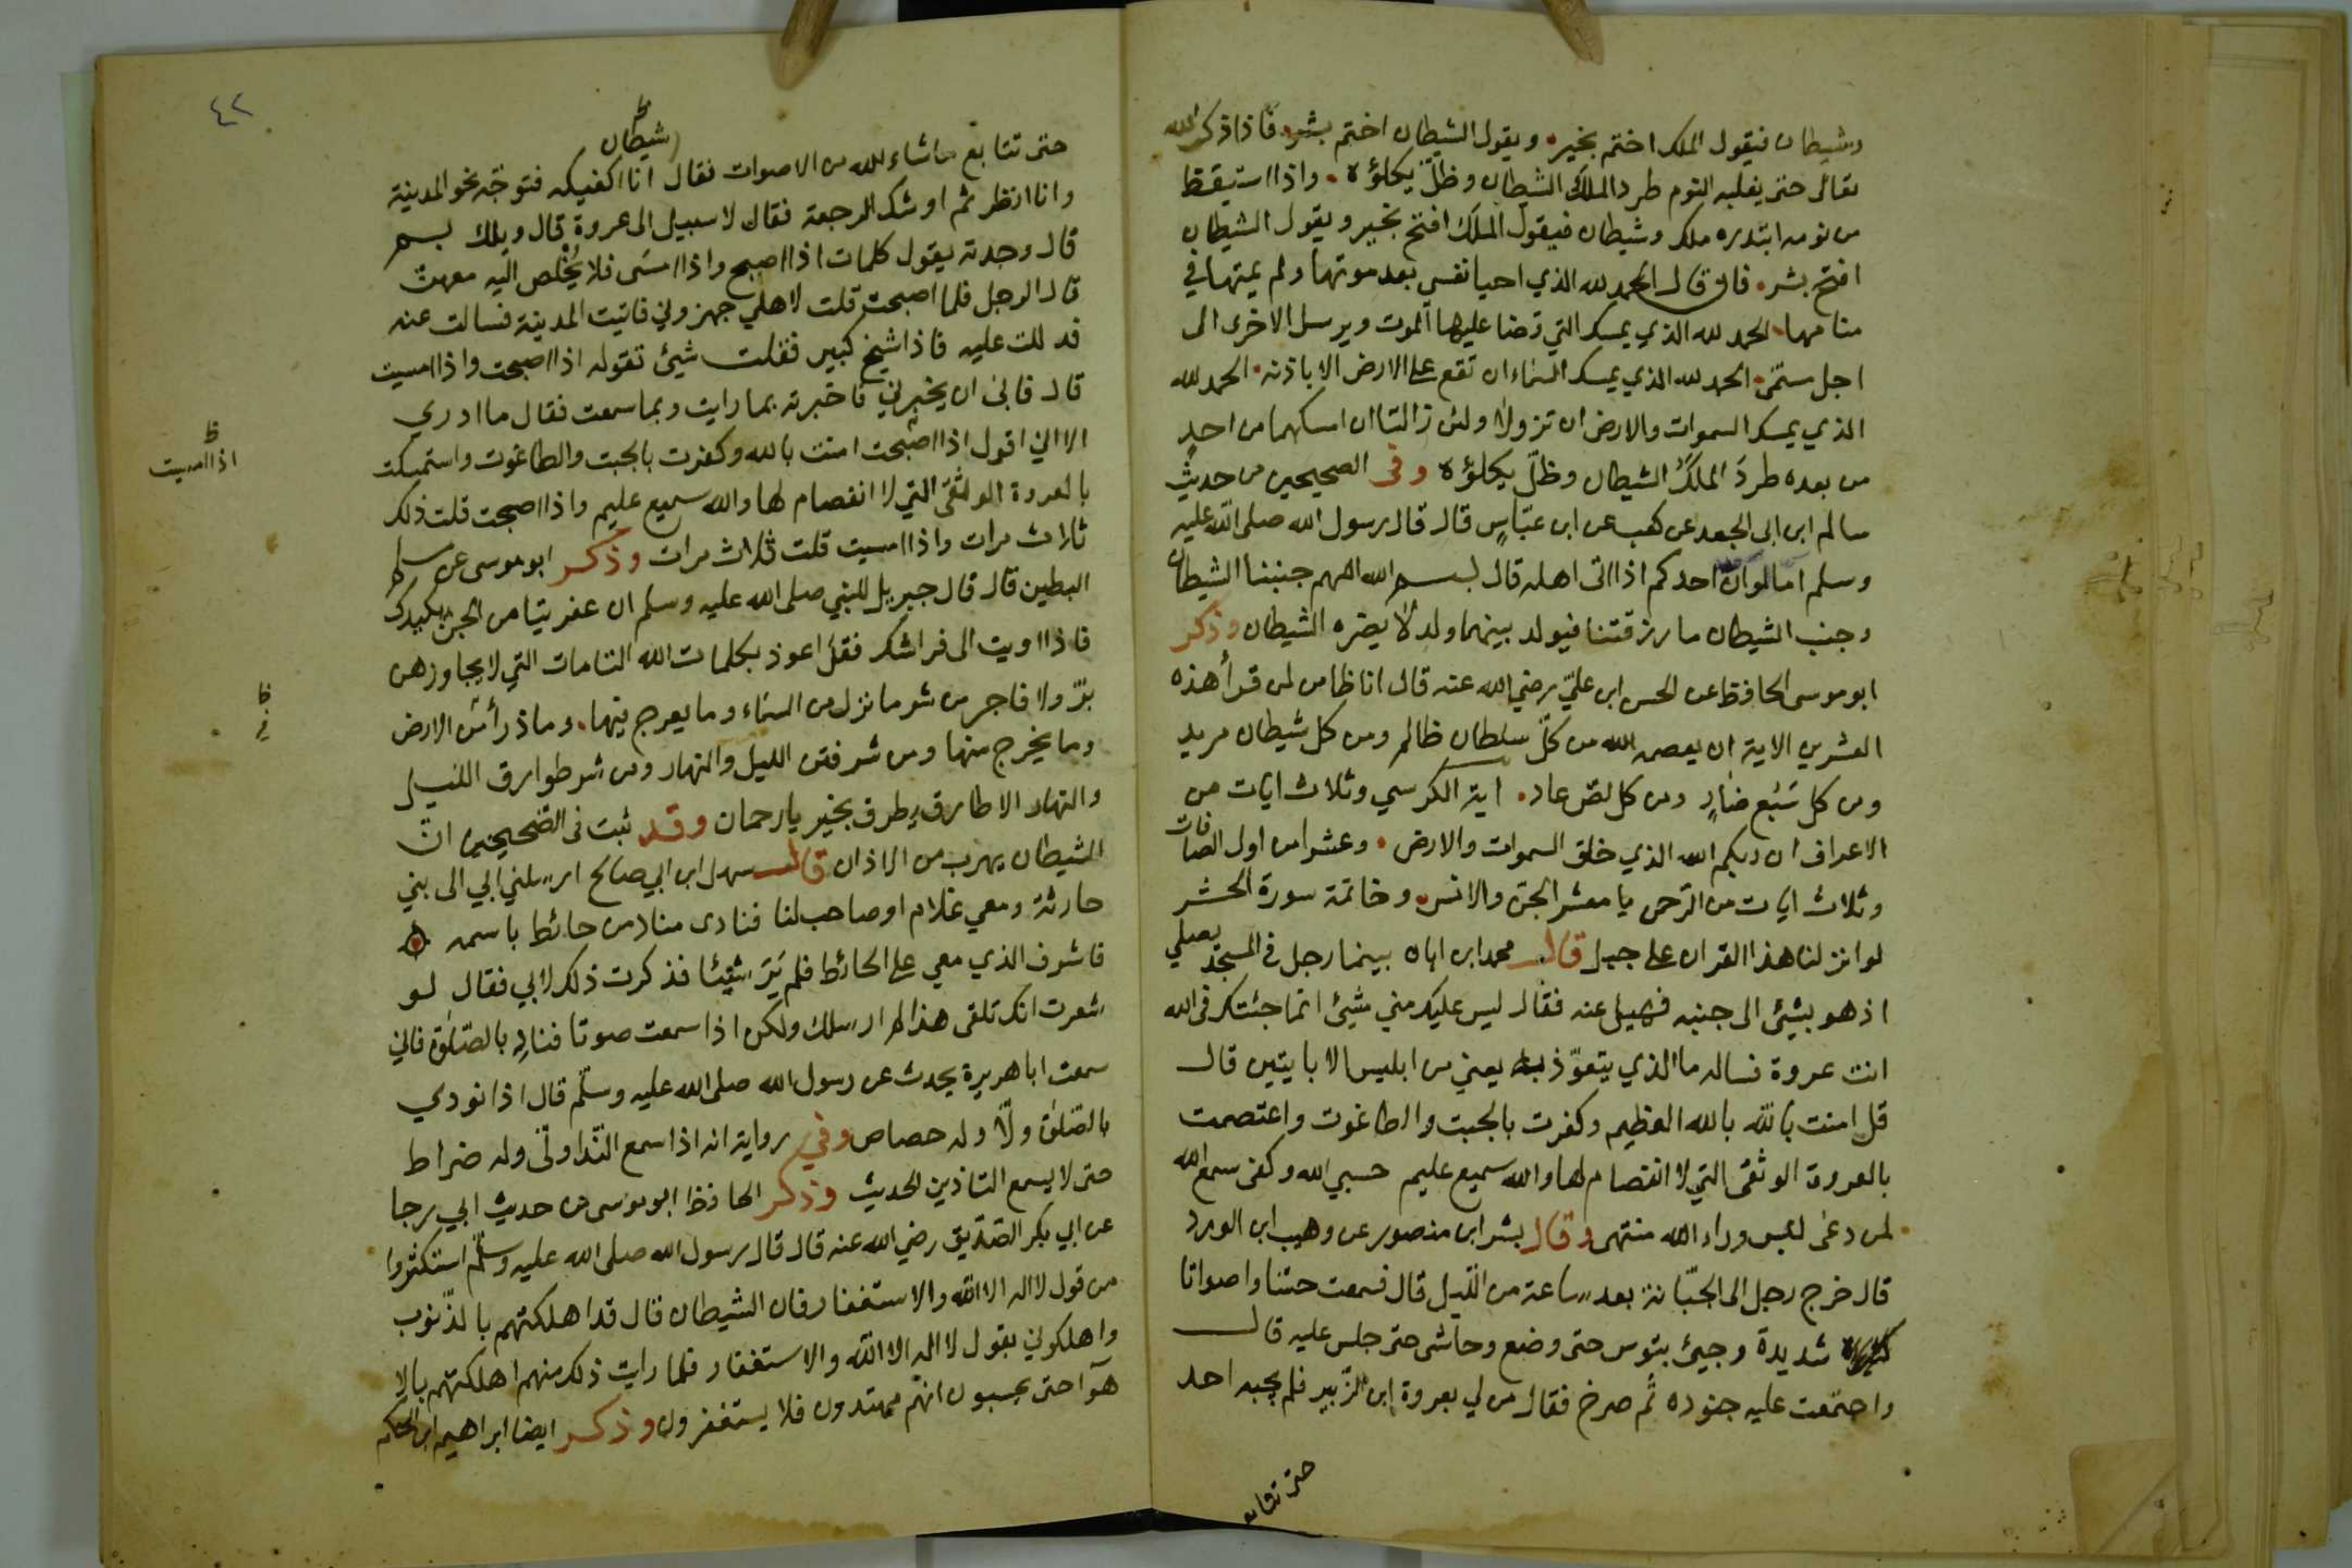 وشيطان فيقول الملك اختم بخير. ويقول الشيطان اختم بشر. فاذا ذكر الله
تعالى حتى يغلبه النوم طرد الملك الشيطان وظلّ يكلؤه. واذا استيقظ
من نومه ابتدره ملك وشيطان فيقول الملك افتح بخير ويقول الشيطان
افتح بشر. فان قال الحمد لله الذي احيا نفسي بعد موتها ولم يمتها في
منامها. الحمد لله الذي يمسك التي قضا عليها الموت ويرسل الاخرى الى
اجل مسمّى. الحمد لله الذي يمسك السماء ان تقع على الارض الا باذنه. الحمد لله
الذي يمسك السموات والارض ان تزولا ولئن زالتا ان امسكهما من احدٍ
من بعده طردَ الملَكُ الشيطان وظلّ يكلؤه وفى الصحيحين من حديث
سالم ابن ابى الجعد عن كهب عن ابن عبّاسٍ قال قال رسول الله صلى الله عليه
وسلم اما لو ان احدكم اذا اتى اهله قال بسم الله اللهم جنبنا الشيطان
وجنب الشيطان ما رزقتنا فيولد بينهما ولد لا يضره الشيطان وذكر
ابو موسى الحافظ عن الحسن ابن عليّ رضي الله عنه قال انا ظامن لمن قرأ هذه
العشرين الاية ان يعصمه الله من كلّ سلطان ظالم ومن كل شيطان مريد
ومن كل سَبُع ضارٍ ومن كل لصّ عاد. اية الكرسي وثلاث ايات من
الاعراف ان ربكم الله الذي خلق السموات والارض. وعشرا من اول الصافات
وثلاث ايات من الرّحمن يا معشر الجنّ والانس. وخاتمة سورة الحشر
لو انزلنا هذا القران على جبل قال محمد ابن ابان بينما رجل فى المسجد يصلي
اذ هو بشيئ الى جنبه فهيل عنه فقال ليس عليك مني شيئ انما جئتك فى الله
انت عروة فساله ما الذي يتعوّذ به يعني من ابليس الابايتين قال
قل امنت بالله بالله العظيم وكفرت بالجبت والطاغوت واعتصمت
بالعروة الوثقى التي لا انفصام لها والله سميع عليم حسبي الله وكفى سمع الله
لمن دعى ليس وراء الله منتهى وقال بشر ابن منصور عن وهيب ابن الورد
قال خرج رجل الى الجبّانة بعد ساعة من الليل قال فسمعت حسّا واصواتا
شديدة وجيئ بتوس حتى وضع وحاشى حتى جلس عليه قال
واجتمعت عليه جنوده ثم صرخ فقال من لي بعروة ابن الزبير فلم يجبه احد
حتى تتابع
٤٢
حتى تتابع ما شاء الله من الاصوات فقال شيطان انا اكفيكه فتوجّه نحو المدينة
ظ
وانا انظر ثم اوشك الرجعة فقال لا سبيل الى عروة قال ويلك بسم
قال وجدته يقول كلمات اذا اصبح واذا امسَى فلا يُخْلص اليه معهنّ
قال الرجل فلما اصبحت قلت لاهلي جهزوني فاتيت المدينة فسالت عنه
فدللت عليه فاذا شيخ كبير فقلت شيئ تقوله اذا اصبحت واذا امسيت
قال فابى ان يخبرني فاخبرته بما رايت وبما سمعت فقال ما ادري
الا اني اقول اذا اصبحت امنت بالله وكفرت بالجبت والطاغوت واستمسكت
ظ
اذا امسيت
بالعروة الوثقى التي لا انفصام لها والله سميع عليم واذا اصبحت قلت ذلك
ثلاث مرات واذا امسيت قلت ثلاث مرات وذكر ابو موسى عن مسلم
البطين قال قال جبريل للنبي صلى الله عليه وسلم ان عفريتا من الجن يكيدك
فاذا اويت الى فراشك فقل اعوذ بكلمات الله التامات التي لا يجاوزهن
برّ ولا فاجر من شر ما نزل من السماء وما يعرج فيها. وما ذرأ من الارض
ظ
في
وما يخرج منها ومن شر فتن الليل والنهار ومن شر طوارق الليل
والنهار الا طارق يطرق بخير يا رحمان وقد ثبت فى الصحيحين انّ
الشيطان يهرب من الاذان قال سهل ابن ابي صالح ارسلني ابي الى بني
حارثة ومعي غلام او صاحب لنا فنادى مناد من حائط باسمه
فاشرف الذي معي على الحائط فلم يَرَ شيئا فذكرت ذلك لابي فقال لو
شعرت انك تلقى هذا لم ارسلك ولكن اذا سمعت صوتا فنادِ بالصلوة فاني
سمعت ابا هريرة يحدث عن رسول الله صلى الله عليه وسلّم قال اذا نودي
بالصّلوة ولّا وله حصاص وفي رواية انه اذا سمع النّدا ولّى وله ضراط
حتى لا يسمع التاذين الحديث وذكر الحافظ ابو موسى من حديث ابي رجا
عن ابي بكر الصّدّيق رضي الله عنه قال قال رسول الله صلى الله عليه وسلّم استكثروا
من قول لا اله الا الله والاستغفار فان الشيطان قال قد اهلكتهم بالذّنوب
واهلكوني بقول لا اله الا الله والاستغفار فلما رايت ذلك منهم اهلكتهم بالا
هوآ حتى يحسبون انهم مهتدون فلا يستغفرون وذكر ايضا ابراهيم ابن الحكم